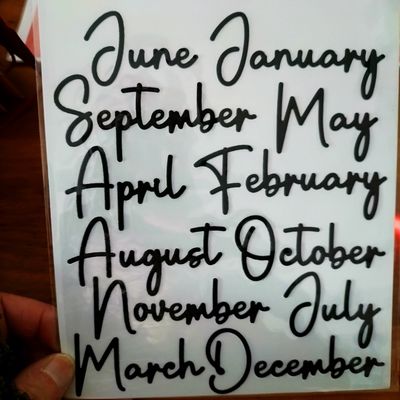 June January
September May
April February
August October
November July
March December